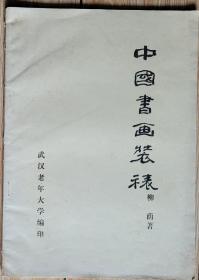 中國書画装裱
柳蓢著
武汉老年大学编印